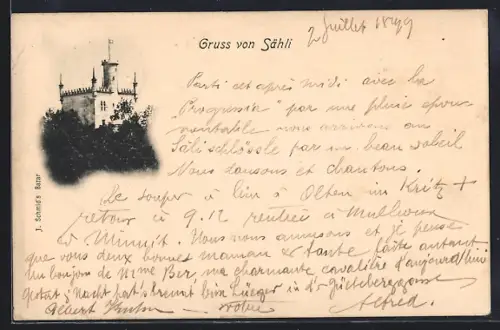 Gruss von Sähli
2 Juillet 1899
Parti cet après midi avec la
"Progressia" par une pluie épou-
vantable nous arrivons au
Sälischlössle par un beau soleil
Nous dansons et chantons.
Le souper a lieu à Olten im Kritz +
retour à 9.12 rentrée à Mulhouse
à Minuit. Nous nous amusons et je pense
que vous deux bonnes maman & tante faite autant.
Un bonjour de Mme Ber ma charmante cavalière d'aujourd'hui
Nacht
Alfred.
Albert
J. Schmid's Bazar